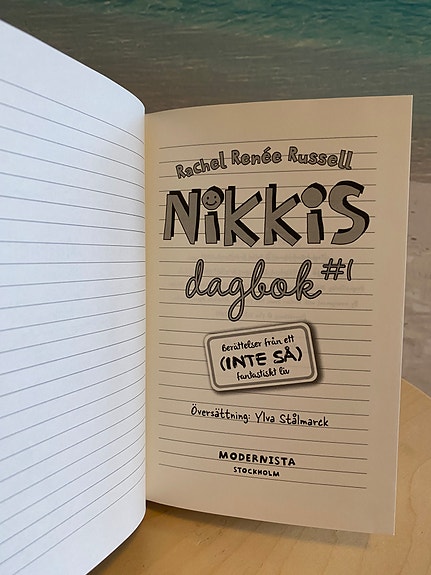 Rachel Renée Russell
NiKKiS
dagbok #1
Berättelser från ett
(INTE SÅ)
fantastiskt liv
Översättning: Ylva Stålmarck
MODERNISTA
STOCKHOLM